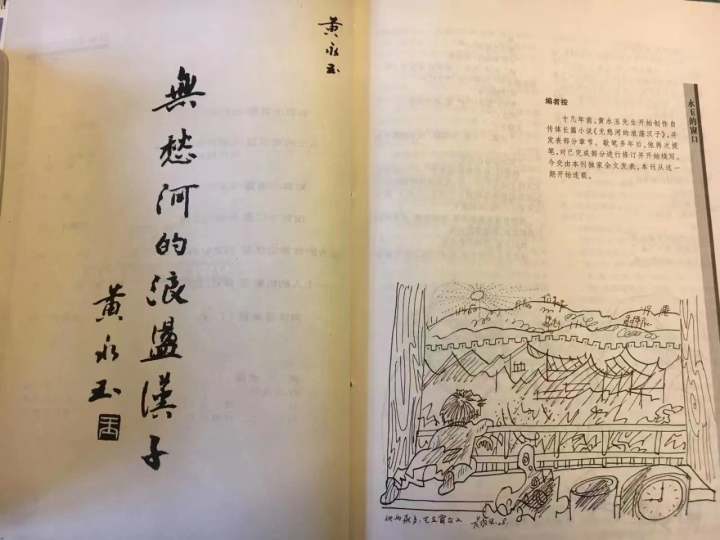 黄永玉
無愁河的浪盪漢子
黄永玉
永玉的窗口
编者按
十几年前，黄永玉先生开始创作自
传体长篇小说《无愁河的浪荡汉子》，并
发表部分章节。歇笔多年后，他再次提
笔，对已完成部分进行修订并开始续写。
今交由本刊独家全文发表，本刊从这一
期开始连载。